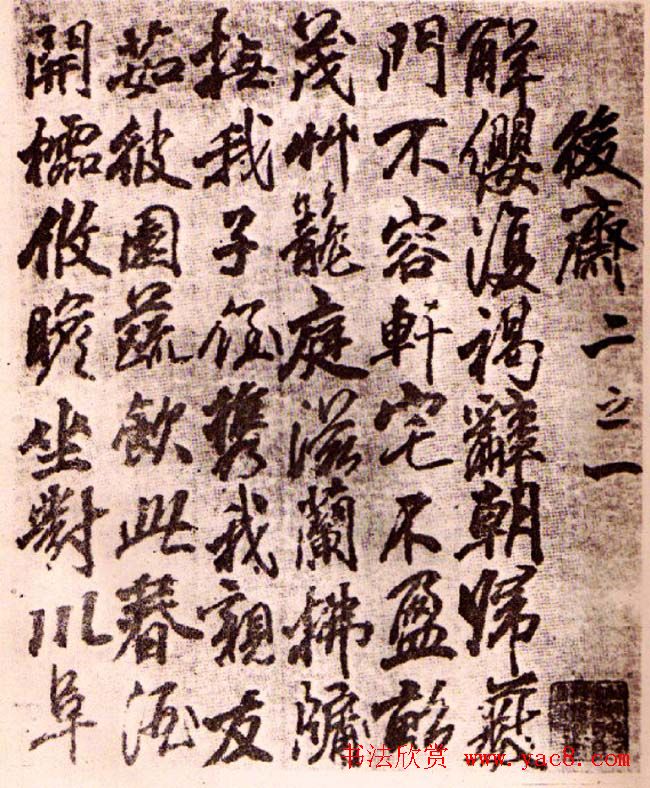 後齋二之一
解纓復褐辭朝歸藪
門不容軒宅不盈畝
茂艸籠庭滋蘭拂牖
撫我子侄携我親友
茹彼園蔬飲此春酒
開櫺攸瞻坐對川阜
书法欣赏 www.yac8.com